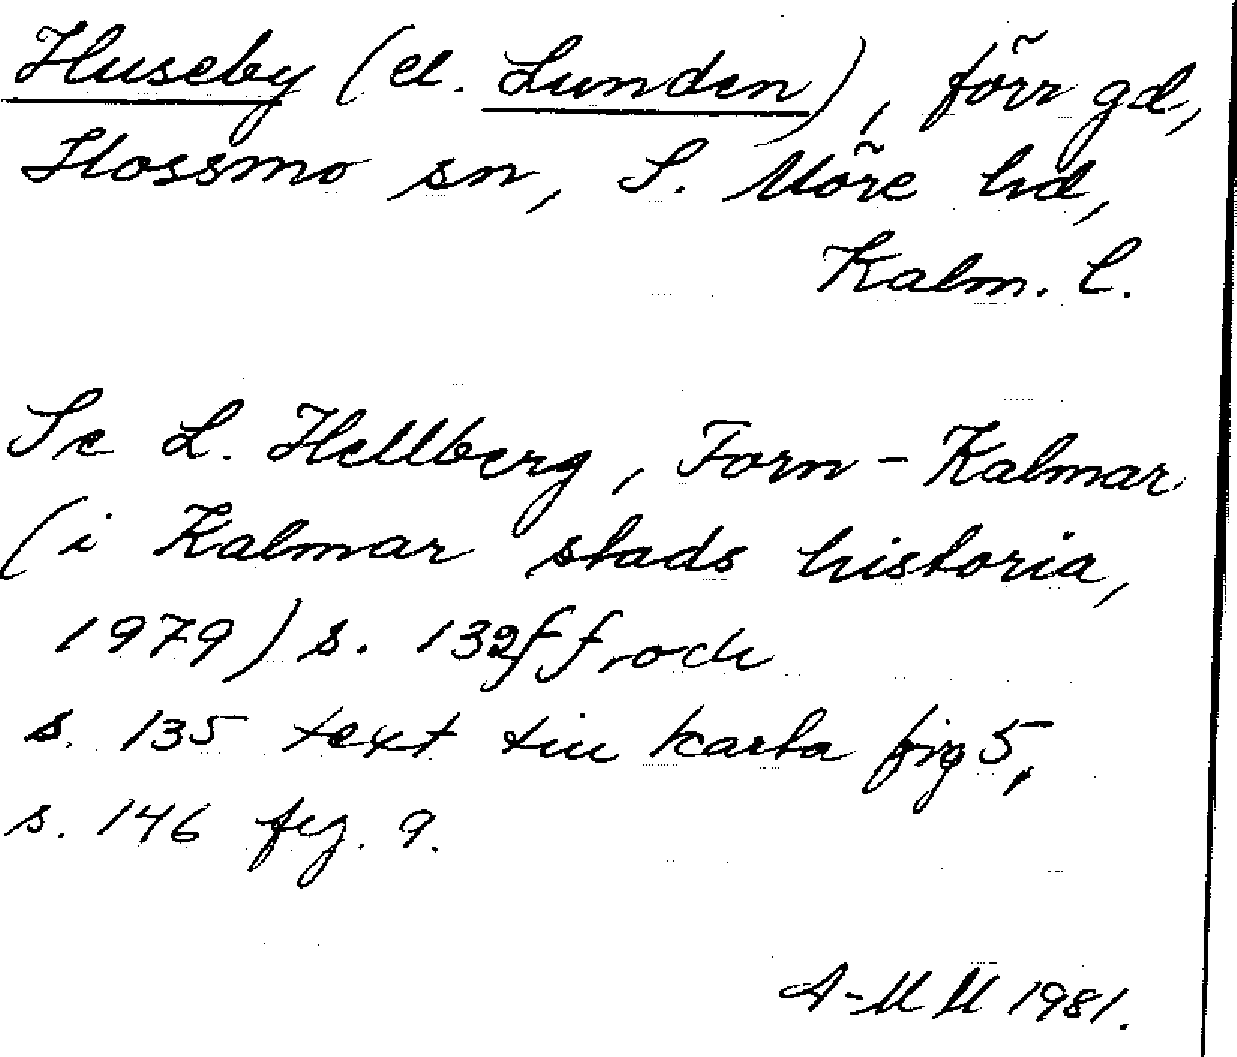 Huseby (el. Lunden), förr gd,
Hossmo sn, S. Möre hd,
Kalm. l.
Se L. Hellberg, Forn-Kalmar
(i Kalmar stads historia,
1979) s. 132ff, och
s. 135 text till karta fig 5,
s. 146 fig. 9.
A-MM 1981.